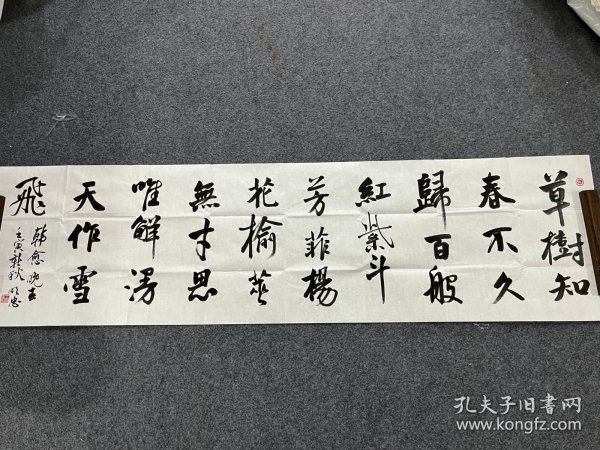 草樹知
春不久
歸百般
紅紫斗
芳菲楊
花榆莢
無才思
唯解漫
天作雪
飛
韩愈晚春
壬寅
孔夫子旧书网
www.kongfz.com